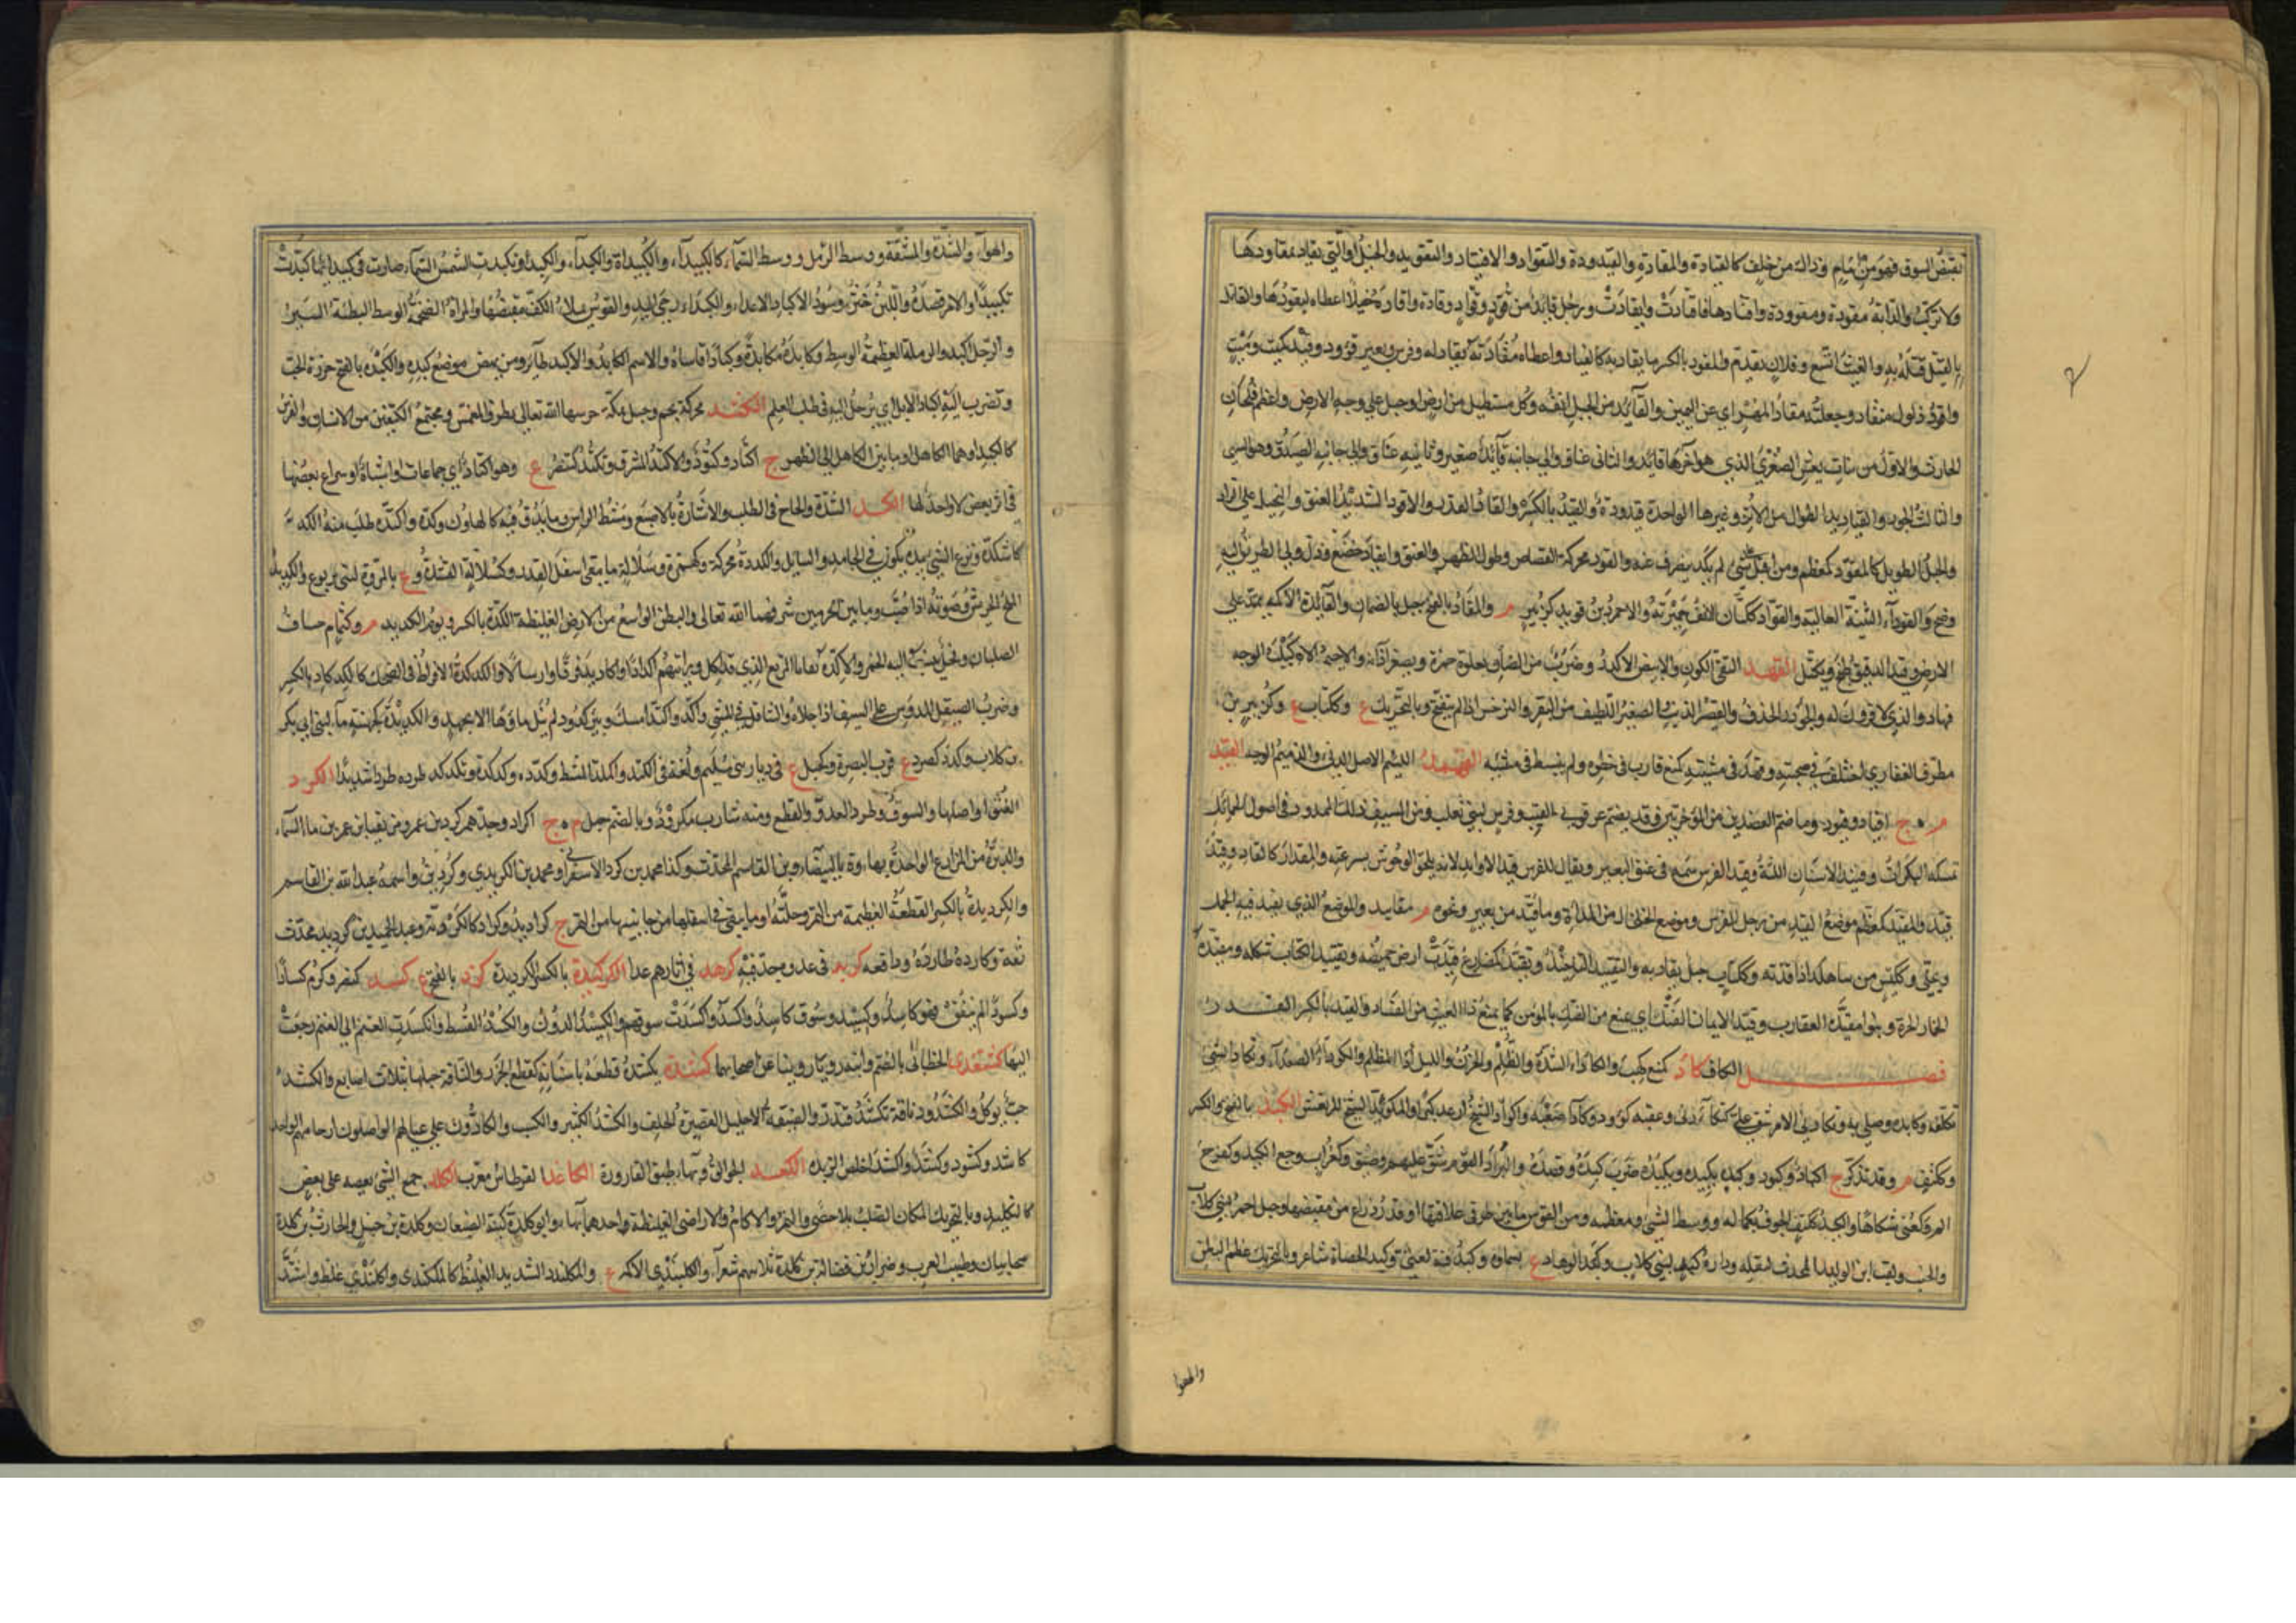 نقيض السوق فهو من امام وذاك من خلف كالقيادة والمقادة والقيدودة والتقواد والاقتياد والتقويد والخيل او التي تقاد بمقاودها
ولا تركب والدابة مقودة ومقوودة واقتادها فاقتادت وانقادت ورجل قائد من قود وقواد وقادة واقاده خيلا اعطاه ليقودها والقاتل
بالقتيل قتله به والغيث اتسع وفلان تقدم والمقود بالكسر ما يقاد به كالقياد واعطاه مقادته انقاد له وفرس وبعير قؤود وقيد كميت وميت
واقود ذلول منقاد وجعلته مقاد المهر اي عن اليمين والقائد من الجبل انفه وكل مستطيل من ارض او جبل على وجه الارض واعظم فلجان
الحارث والاول من بنات نعش الصغرى الذي هو اخرها قائد والثاني عناق والى جانبه قائد صغير وثانيه عناق والى جانبه الصيدق وهو السهى
والثالث الحور والقياديد الطوال من الاتن وغيرها الواحدة قيدودة والقيد بالكسر والقاد القدر والاقود الشديد العنق والبخيل على الزاد
والجبل الطويل كالمقود كمعظم ومن اقبل على شئ لم يكد يصرف عنه والقود محركة القصاص وطول الظهر والعنق وانقاد خضع وذل ولي الطريق اليه
وضح والقوداء الثنية العالية والقواد ككتان الانف حميرية والاحمر بن قويد كزبير م والمقاد بالفتح جبل بالصمان والقائدة الاكمة تمتد على
الارض وقيد الدقيق طبخ وتكتل القهد النقي اللون والابيض الاكدر وضرب من الضان تعلوه حمرة وتصغر اذانه والاحيمر الاكيلف الوجه
قهاد والذي لا قرون له والجؤذر والحذف والقصير الذنب الصغير اللطيف من البقر والنرجس اذا لم يتفتح وبالتحريك ع وككتاب ع وكزبير بن
مطرف الغفاري اختلف في صحبته وقهد في مشيته كمنع قارب في خطوه ولم ينبسط في مشيه القهمد اللئيم الاصل الدنئ والدميم الوجه القيد
م ج اقياد وقيود وما ضم العضدين من المؤخرتين وقد يضم عرقوبي القتب وفرس لبني تغلب ومن السيف ذلك الممدود في اصول الحمائل
تمسكه البكرات وقيد الاسنان اللثة وقيد الفرس سمة في عنق البعير ويقال للفرس قيد الاوابد لانه يلحق الوحوش بسرعته والمقدار كالقاد وقيده
قيد والمقيد كمعظم موضع القيد من رجل الفرس وموضع الخلخال من المراة وما قيد من بعير ونحوه م مقاييد والموضع الذي يقيد فيه الجمل
ويخلى وككيس من ساهلك اذا قدته وككتاب حبل يقاد به والتقييد التاخيذ وتقيد كمضارع قيدت ارض حميضة وتقييد الكتاب شكله ومقيدة
الحمار الحرة وبنو مقيدة العقارب وقيد الايمان الفتك اي منع من الفتك بالمؤمن كما يمنع ذا العيث من الفساد والقيد بالكسر القدر
فصل الكاف كاد كمنع كئب والكاداء الشدة والظلم والحزن والليل المظلم والكوداء الصعداء وتكاد الشئ
تكلفه وكابده وصلي به وتكادني الامر شق علي كتكاءدني وعقبة كؤود وكاداء صعبة واكواد الشيخ ارعد كبرا والمكوئد الشيخ المرتعش الكبد بالفتح والكسر
وككتف م وقد تذكر ج اكباد وكبود وكبده يكبده ويكبده ضرب كبده وقصده والبرد القوم شق عليهم وضيق وكغراب وجع الكبد وكفرح
الم وكعني شكاها والكبد ككتف الجوف بكماله ووسط الشئ ومعظمه ومن القوس ما بين طرفي علاقتها او قدر ذراع من مقبضها وجبل احمر لبني كلاب
والجنب ولقب ابن الوليد المحدث لثقله ودارة كبد لبني كلاب وكبد الوهاد ع بسماوة وكبد قنة لغني وكبد الحصاة شاعر وبالتحريك عظم البطن
والهوا
والهواء والشدة والمشقة ووسط الرمل ووسط السماء كالكبيداء والكبيداة والكبداء والكبد وتكبدت الشمس السماء صارت في كبيدائها ككبدت
تكبيدا والامر قصده واللبن خثر وسود الاكباد الاعداء والكبداء رحى اليد والقوس يملا الكف مقبضها والمراة الضخمة الوسط البطيئة السير
والرجل اكبد والرملة العظيمة الوسط وكابده مكابدة وكبادا قاساه والاسم الكابد والاكبد طائر ومن نهض موضع كبده والكبدة بالفتح خرزة للحب
وتضرب اليه اكباد الابل اي يرحل اليه في طلب العلم الكتد محركة نجم وجبل بمكة حرسها الله تعالى بطرف المغمس ومجتمع الكتفين من الانسان والفرس
كالكتد او هما الكاهل او ما بين الكاهل الى الظهر ج اكتاد وكتود والاكتد المشرف وتكتد كتنصر ع وهو اكتاد اي جماعات او اشباه او سراع بعضها
في اثر بعض لا واحد لها الكد الشدة والالحاح في الطلب والاشارة بالاصبع ومشط الراس وما يدق فيه كالهاون وكده واكتده طلب منه الكد
كاستكده ونزع الشئ بيده يكون في الجامد والسائل والكددة محركة وكهمزة وسلالة ما يبقى اسفل القدر وكسلالة القشدة وع بالمروت لبني يربوع والكديد
الملح الجريش وصوته اذا صب وما بين الحرمين شرفهما الله تعالى والبطن الواسع من الارض الغليظة كالكدة بالكسر ويوم الكديد م وكثمام حساف
الصليان وفحل ينسب اليه الحمر والاكدة بقايا المرتع الذي قد اكل ورايتهم اكدادا واكاديد فرقا وارسالا والكدكدة الافراط في الضحك كالكدكاد بالكسر
وضرب الصيقل المدوس على السيف اذا جلاه والتثاقل في المشي واكد واكتد امسك وبئر كدود لم ينل ماؤها الا بجهد والكديدة كجهينة ماء لبني ابي بكر
بن كلاب وكدد كصرد ع قرب البصرة وكجبل ع في ديار بني سليم ولغة في الكتد والمكد المشط وكدده وكدكده وتكدكد طرده طردا شديدا الكرد
العنق او اصلها والسوق وطرد العدو والقطع ومنه شارب مكرود وبالضم جيل م ج اكراد وجدهم كرد بن عمرو مزيقياء بن عامر بن ماء السماء
والدبرة من المزارع الواحدة بهاء وة بالبيضاء وابن القاسم المحدث وكذا محمد بن كرد الاسفرايني ومحمد بن الكريدي وكردين واسمه عبد الله بن القاسم
والكرديدة بالكسر القطعة العظيمة من التمر وجلته او ما يبقى في اسفلها من جانبيها من التمر ج كراديد وكراد كالكردية وعبد الحميد بن كرديد محدث
ثقة وكارده طارده ودافعه كربد في عدوه جد فيه كرهد في اثارهم عدا الكركيدة بالكسر الكرديدة كزد بالفتح ع كسد كنصر وكرم كسادا
وكسودا لم ينفق فهو كاسد وكسيد وسوق كاسد واكسد واكسدت سوقهم والكسيد الدون والكسد القسط وانكسدت الغنم الى الغنم رجعت
اليها كشتغدى الخطائي بالضم وابنه رويا وروينا عن اصحابهما كشده يكشده قطعه باسنانه كقطع الجزر والناقة حلبها بثلاث اصابع والكشد
حب يؤكل والكشود ناقة تكشد فتدر والضيقة الاحليل القصيرة الخلف والكشد الكثير والكسب والكادون على عيالهم الواصلون ارحامهم الواحد
كاشد وكشود وكشد واكشد اخلص الزبد الكعد الجوالق وبهاء طبق القارورة الكاغد القرطاس معرب الكلد جمع الشئ بعضه على بعض
كالتكليد وبالتحريك المكان الصلب بلا حصى والنمر والاكام والاراضي الغليظة واحدها بهاء وابو كلدة كنية الضبعان وكلدة بن حنبل والحارث بن كلدة
صحابيان وطبيب العرب وضرار بن فضالة بن كلدة ثلاثتهم شعراء والكلندى الاكمة ع والمكلندد الشديد الغليظ كالمكلندي واكلندى غلظ واشتد